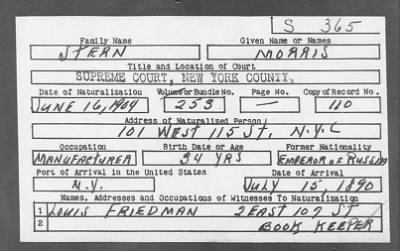 S 365
Family Name Given Name or Names
STERN MORRIS
Title and Location of Court
SUPREME COURT, NEW YORK COUNTY.
Date of Naturalization Volume or Bundle No. Page No. Copy of Record No.
JUNE 16, 1904 253 — 110
Address of Naturalized Person
101 WEST 115 ST. N.Y.C
Occupation Birth Date or Age Former Nationality
MANUFACTURER 34 YRS EMPEROR OF RUSSIA
Port of Arrival in the United States Date of Arrival
N.Y. JULY 15, 1890
Names, Addresses and Occupations of Witnesses To Naturalization
1 LOUIS FRIEDMAN 2 EAST 107 ST
2 BOOK KEEPER